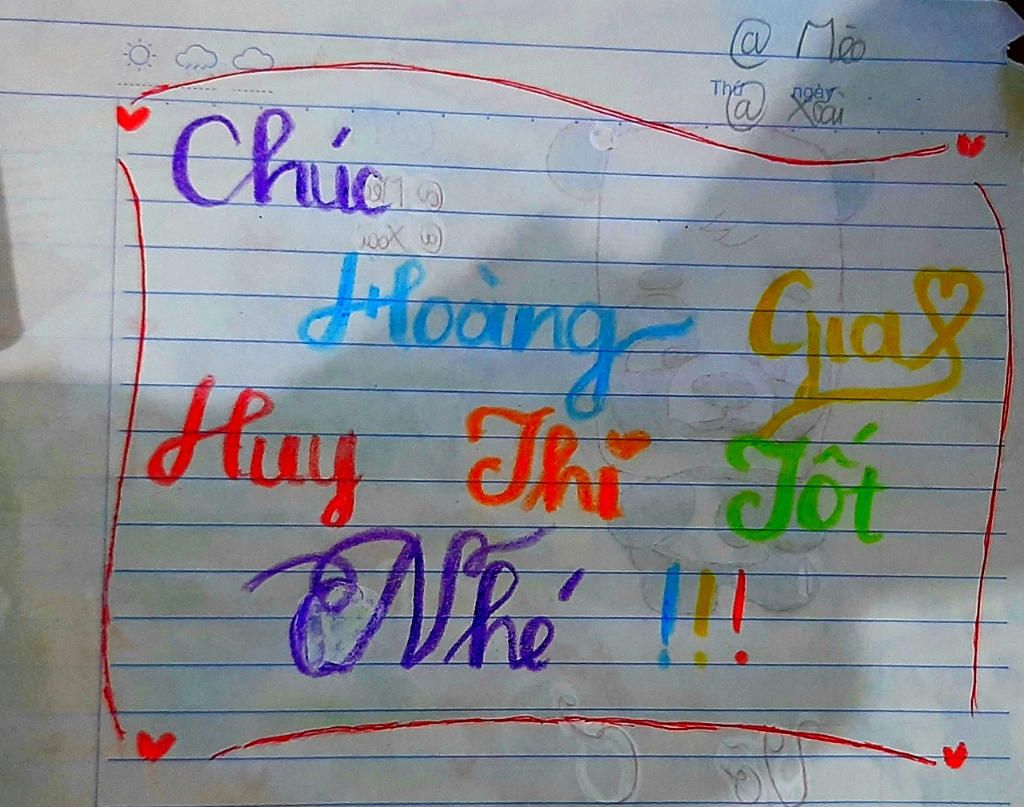 @ Mèo
Thứ ngày
@ Xoài
Chúc
Hoàng Gia
Huy Thi Tốt
Nhé !!!